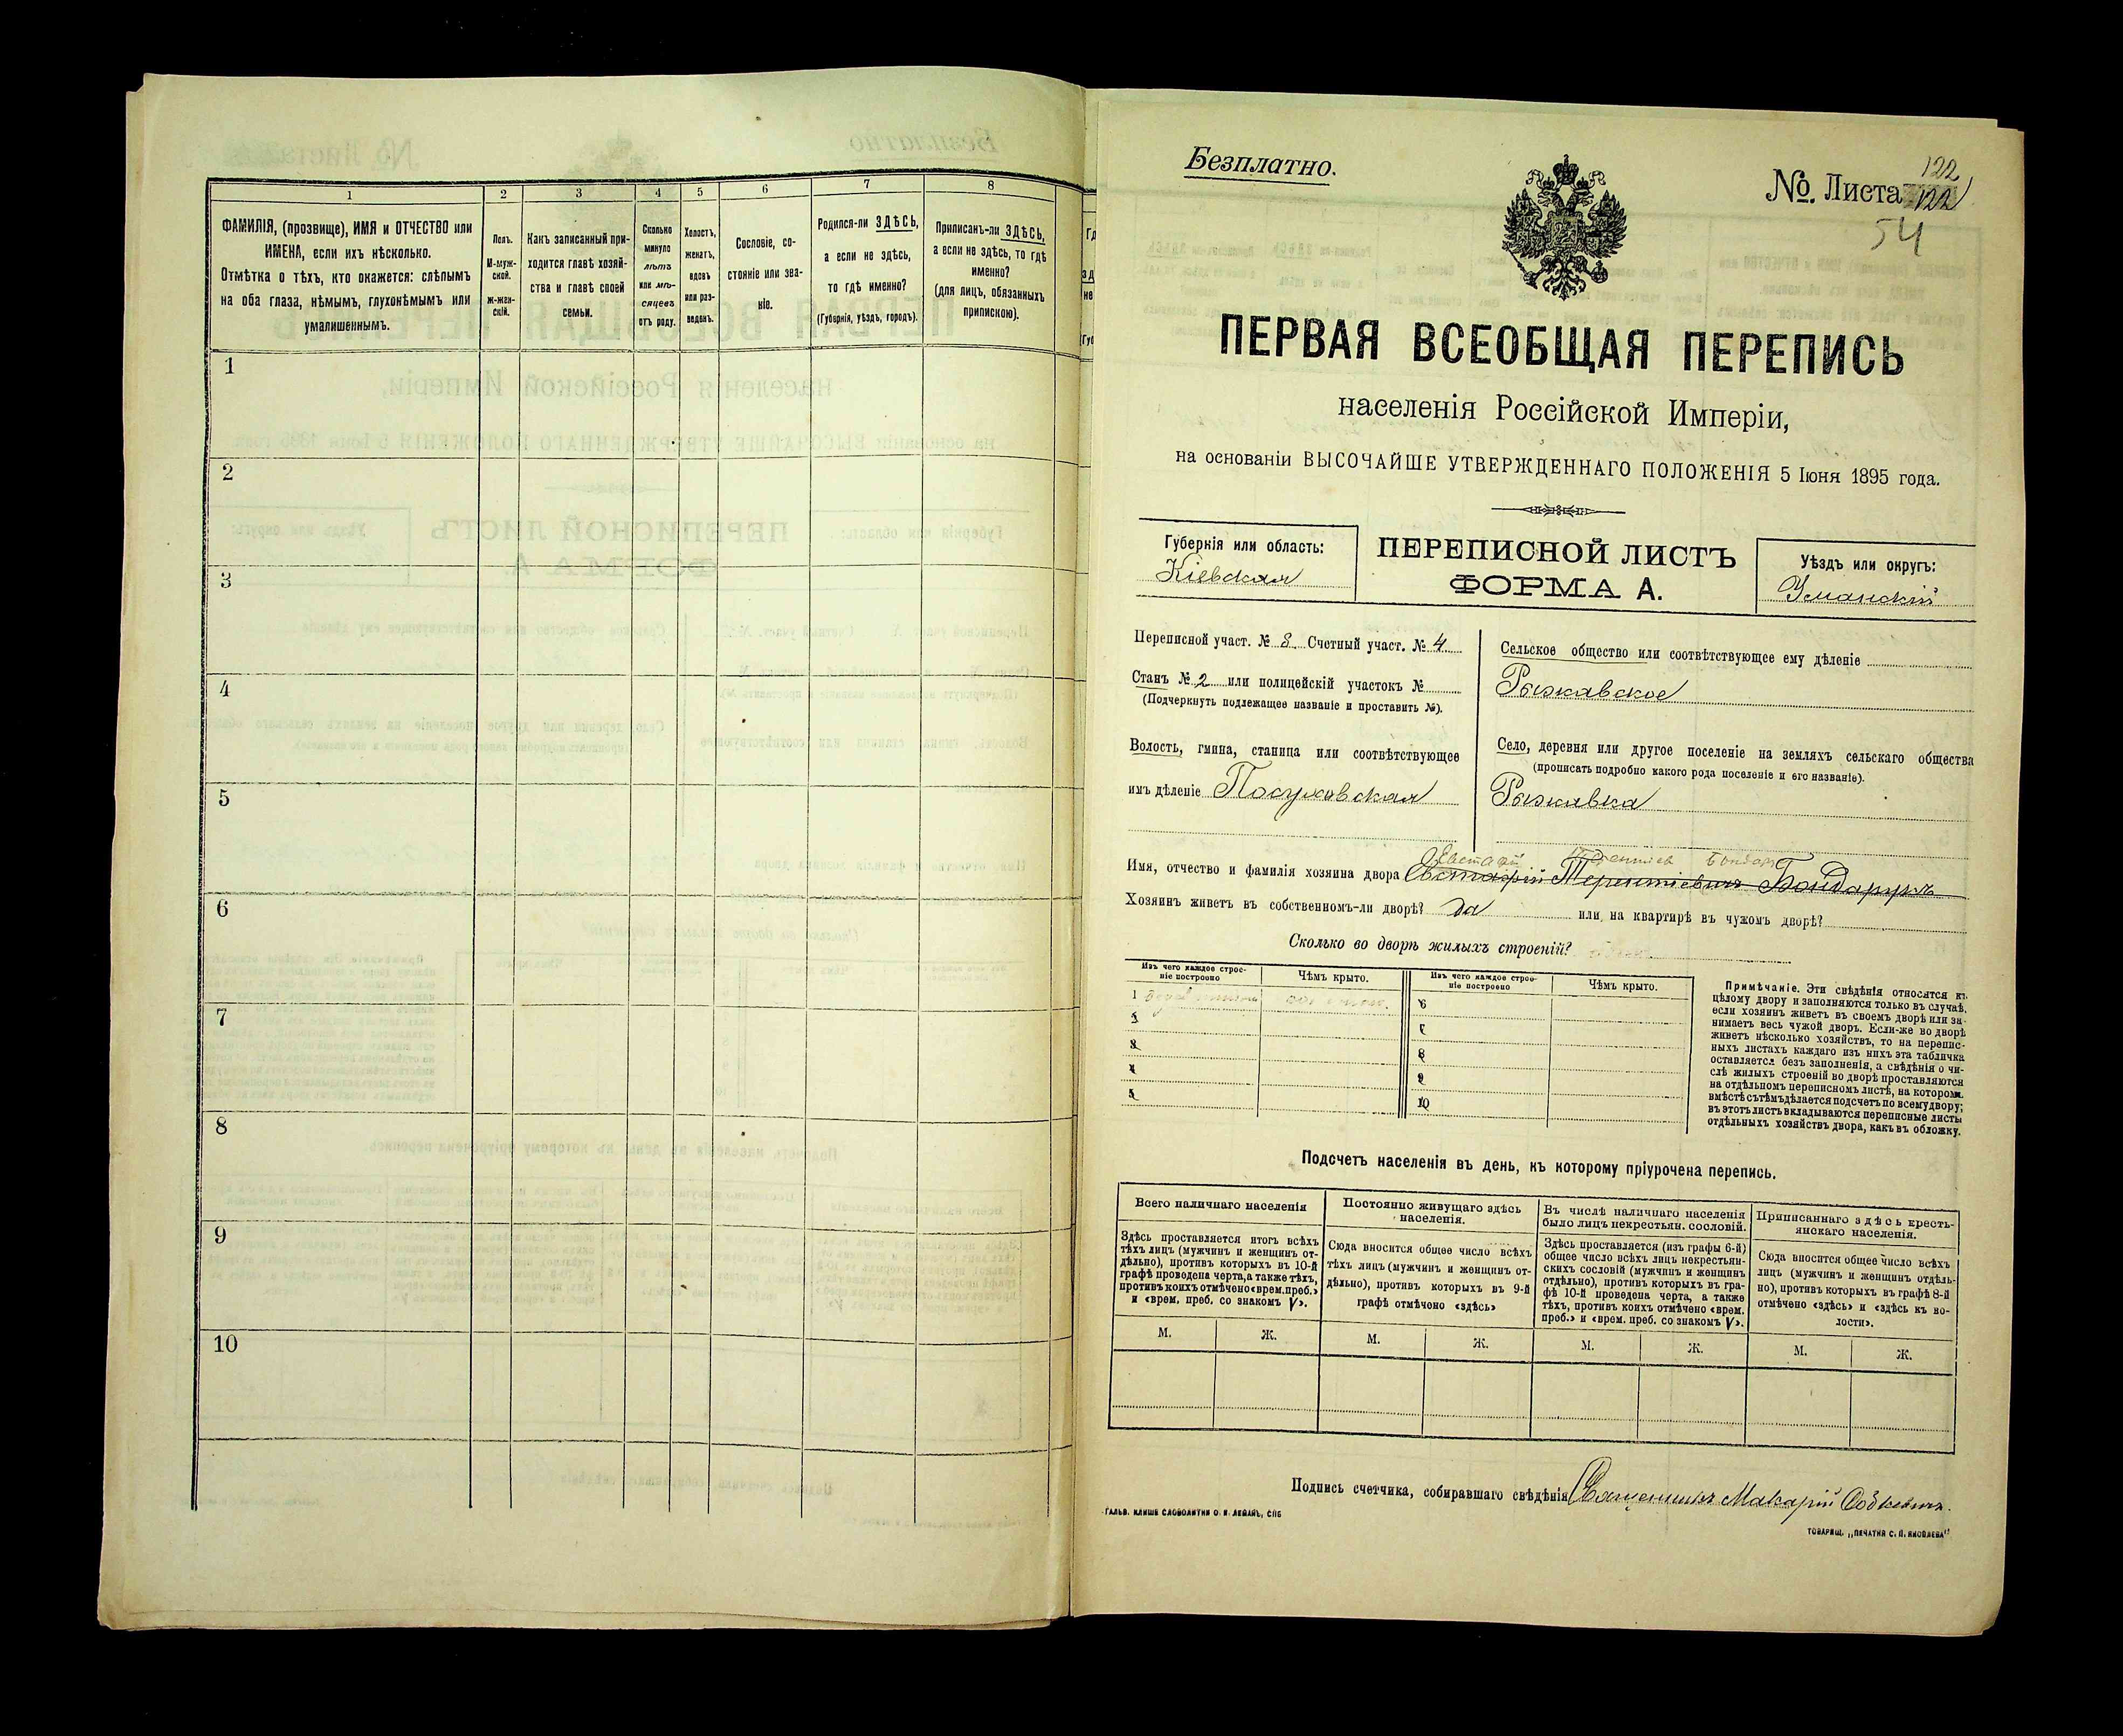 1 2 3 4 5 6 7 8
ФАМИЛІЯ, (прозвище), ИМЯ и ОТЧЕСТВО или
ИМЕНА, если ихъ нѣсколько.
Отмѣтка о тѣхъ, кто окажется: слѣпымъ
на оба глаза, нѣмымъ, глухонѣмымъ или
умалишеннымъ.
Полъ.
М-муж-
ской.
ж-жен-
скій.
Какъ записанный при-
ходится главѣ хозяй-
ства и главѣ своей
семьи.
Сколько
минуло
лѣтъ
или мѣ-
сяцевъ
отъ роду.
Холостъ,
женатъ,
вдовъ
или раз-
веденъ.
Сословіе, со-
стояніе или зва-
ніе.
Родился-ли ЗДѢСЬ,
а если не здѣсь,
то гдѣ именно?
(Губернія, уѣздъ, городъ).
Приписанъ-ли ЗДѢСЬ,
а если не здѣсь, то гдѣ
именно?
(для лицъ, обязанныхъ
припискою).
1
2
3
4
5
6
7
8
9
10
Безплатно.
122
№. Листа 122
54
ПЕРВАЯ ВСЕОБЩАЯ ПЕРЕПИСЬ
населенія Россійской Имперіи,
на основаніи ВЫСОЧАЙШЕ УТВЕРЖДЕННАГО ПОЛОЖЕНІЯ 5 Іюня 1895 года.
Губернія или область:
Кіевская
ПЕРЕПИСНОЙ ЛИСТЪ
ФОРМА А.
Уѣздъ или округъ:
Уманскій
Переписной участ. № 8 Счетный участ. № 4
Станъ № 2 или полицейскій участокъ №
(Подчеркнуть подлежащее названіе и проставить №).
Волость, гмина, станица или соотвѣтствующее
имъ дѣленіе Посуховская
Сельское общество или соотвѣтствующее ему дѣленіе
Рыжавское
Село, деревня или другое поселеніе на земляхъ сельскаго общества
(прописать подробно какого рода поселеніе и его названіе).
Рыжавка
Евстафій Терентіев Бондар
Имя, отчество и фамилія хозяина двора Евстафій Терентіевичъ Бондарукъ
Хозяинъ живетъ въ собственномъ-ли дворѣ? да или на квартирѣ въ чужомъ дворѣ?
Сколько во дворѣ жилыхъ строеній?
Изъ чего каждое строе-
ніе построено
Чѣмъ крыто.
Изъ чего каждое строе-
ніе построено
Чѣмъ крыто.
1 6
2 7
3 8
4 9
5 10
Примѣчаніе. Эти свѣдѣнія относятся къ
цѣлому двору и заполняются только въ случаѣ,
если хозяинъ живетъ въ своемъ дворѣ или за-
нимаетъ весь чужой дворъ. Если-же во дворѣ
живетъ нѣсколько хозяйствъ, то на перепис-
ныхъ листахъ каждаго изъ нихъ эта табличка
оставляется безъ заполненія, а свѣдѣнія о чи-
слѣ жилыхъ строеній во дворѣ проставляются
на отдѣльномъ переписномъ листѣ, на которомъ
вмѣстѣ съ тѣмъ дѣлается подсчетъ по всему двору;
въ этотъ листъ вкладываются переписные листы
отдѣльныхъ хозяйствъ двора, какъ въ обложку.
Подсчетъ населенія въ день, къ которому пріурочена перепись.
Всего наличнаго населенія
Здѣсь проставляется итогъ всѣхъ
тѣхъ лицъ (мужчинъ и женщинъ от-
дѣльно), противъ которыхъ въ 10-й
графѣ проведена черта, а также тѣхъ,
противъ коихъ отмѣчено «врем. преб.»
и «врем. преб. со знакомъ V».
Постоянно живущаго здѣсь
населенія.
Сюда вносится общее число всѣхъ
тѣхъ лицъ (мужчинъ и женщинъ от-
дѣльно), противъ которыхъ въ 9-й
графѣ отмѣчено «здѣсь»
Въ числѣ наличнаго населенія
было лицъ некрестьян. сословій.
Здѣсь проставляется (изъ графы 6-й)
общее число всѣхъ лицъ некрестьян-
скихъ сословій (мужчинъ и женщинъ
отдѣльно), противъ которыхъ въ гра-
фѣ 10-й проведена черта, а также
тѣхъ, противъ коихъ отмѣчено «врем.
преб.» и «врем. преб. со знакомъ V».
Приписаннаго здѣсь кресть-
янскаго населенія.
Сюда вносится общее число всѣхъ
лицъ (мужчинъ и женщинъ отдѣль-
но), противъ которыхъ въ графѣ 8-й
отмѣчено «здѣсь» и «здѣсь къ во-
лости».
М. Ж. М. Ж. М. Ж. М. Ж.
Подпись счетчика, собиравшаго свѣдѣнія Священникъ Макарій Собкевичъ.
ГАЛЬВ. КЛИШЕ СЛОВОЛИТНИ О. И. ЛЕМАНЪ, СПБ
ТОВАРИЩ. „ПЕЧАТНЯ С. П. ЯКОВЛЕВА"